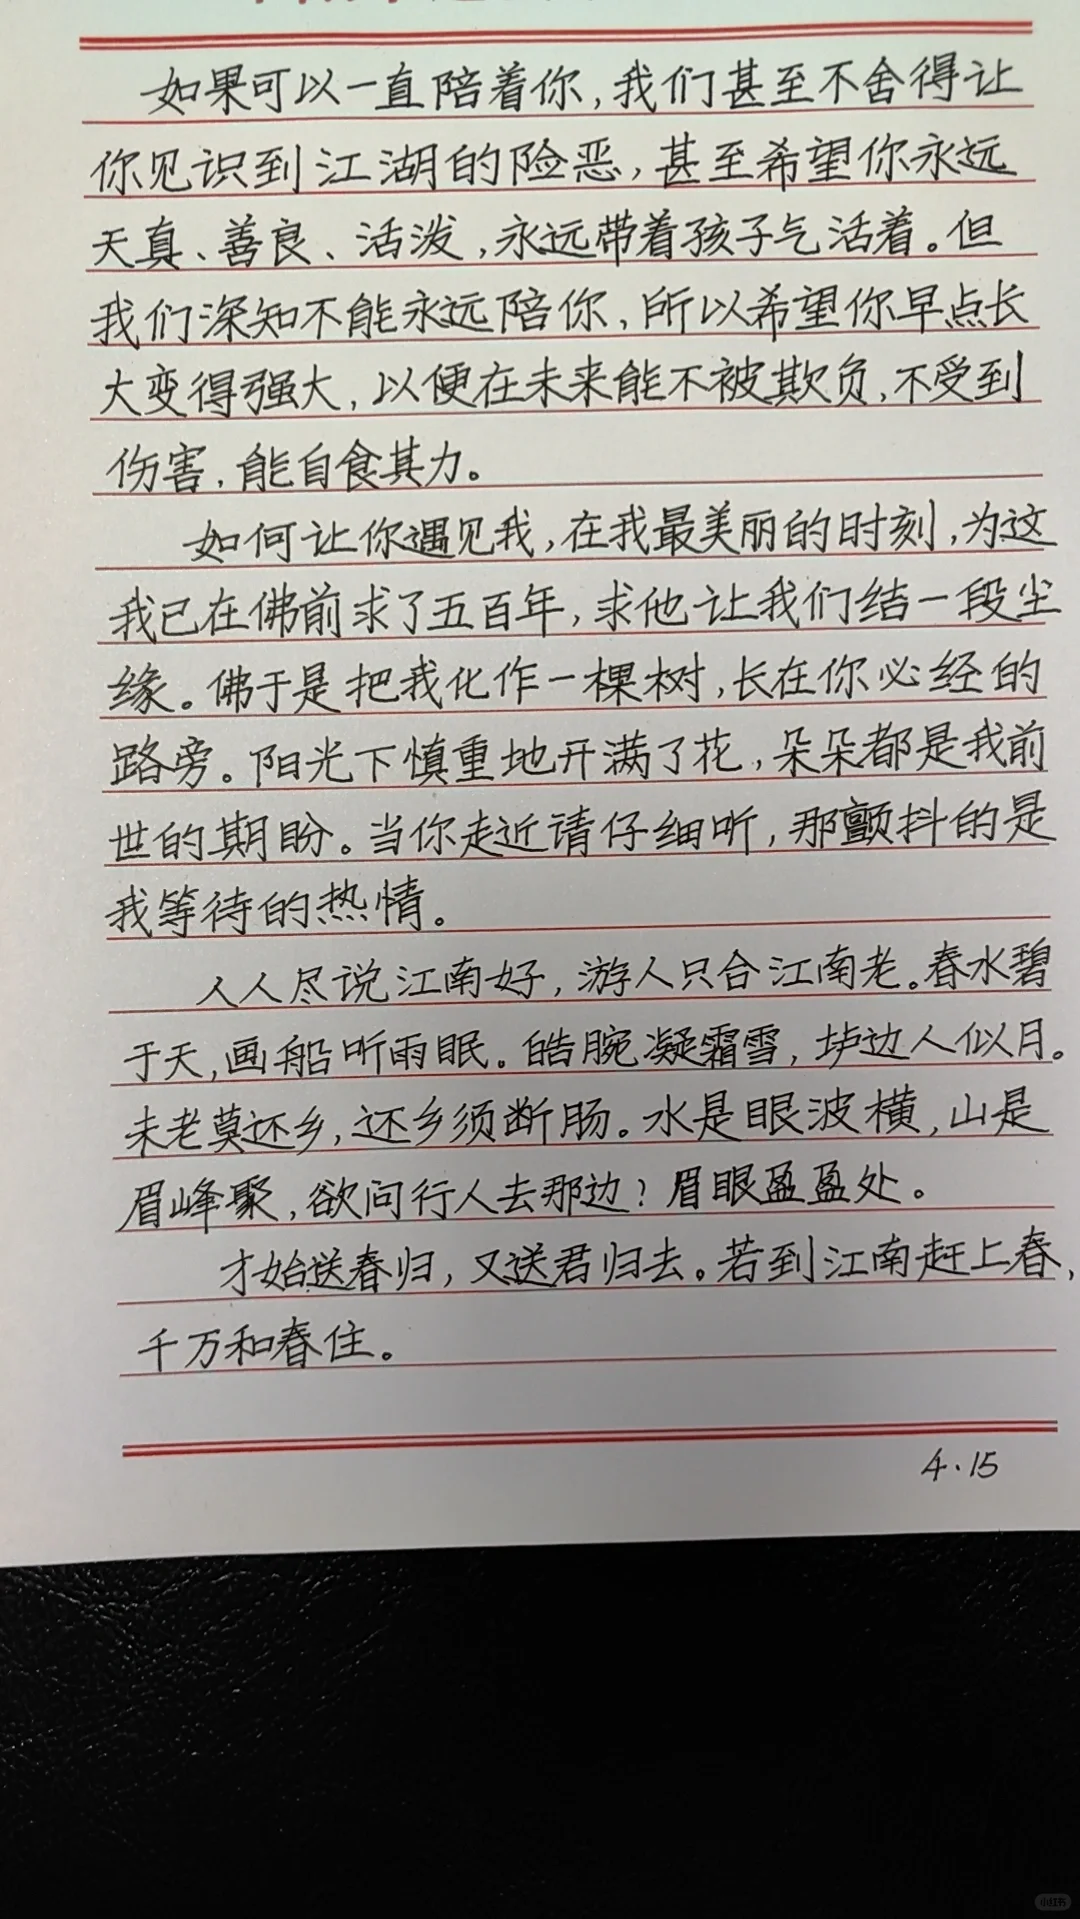 如果可以一直陪着你,我们甚至不舍得让
你见识到江湖的险恶,甚至希望你永远
天真、善良、活泼,永远带着孩子气活着。但
我们深知不能永远陪你,所以希望你早点长
大变得强大,以便在未来能不被欺负,不受到
伤害,能自食其力。
如何让你遇见我,在我最美丽的时刻,为这
我已在佛前求了五百年,求他让我们结一段尘
缘。佛于是把我化作一棵树,长在你必经的
路旁。阳光下慎重地开满了花,朵朵都是我前
世的期盼。当你走近请仔细听,那颤抖的是
我等待的热情。
人人尽说江南好,游人只合江南老。春水碧
于天,画船听雨眠。皓腕凝霜雪,垆边人似月。
未老莫还乡,还乡须断肠。水是眼波横,山是
眉峰聚,欲问行人去那边?眉眼盈盈处。
才始送春归,又送君归去。若到江南赶上春,
千万和春住。
4.15
小红书